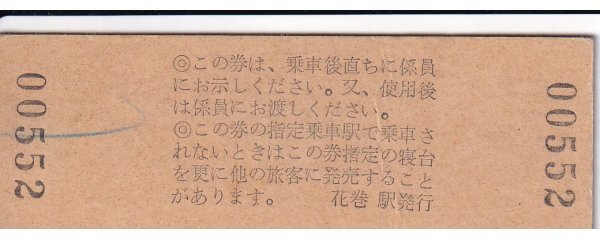 00552
◎この券は、乗車後直ちに係員
にお示しください。又、使用後
は係員にお渡しください。
◎この券の指定乗車駅で乗車さ
れないときはこの券指定の寝台
を更に他の旅客に発売すること
があります。 花巻 駅発行
00552